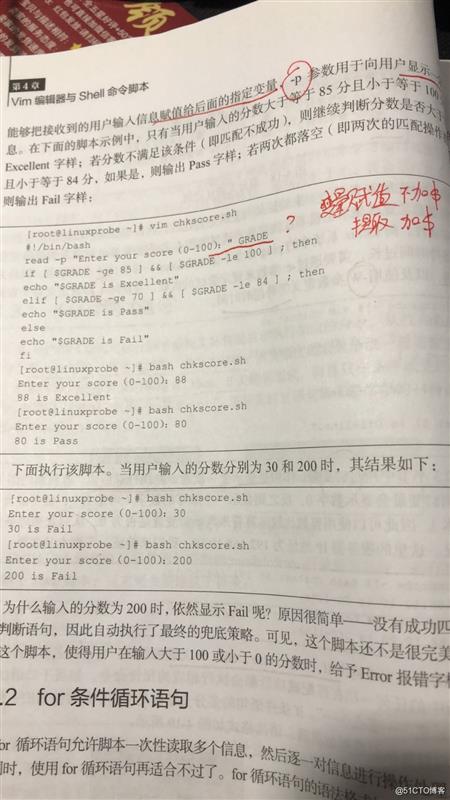 领
第4章
Vim 编辑器与 Shell 命令脚本
能够把接收到的用户输入信息赋值给后面的指定变量, -p 参数用于向用户显示一
息。在下面的脚本示例中,只有当用户输入的分数大于等于 85 分且小于等于 100
Excellent 字样;若分数不满足该条件(即匹配不成功),则继续判断分数是否大于
且小于等于 84 分,如果是,则输出 Pass 字样;若两次都落空(即两次的匹配操作
则输出 Fail 字样:
[root@linuxprobe ~]# vim chkscore.sh
#!/bin/bash
read -p "Enter your score (0-100): " GRADE
? 变量赋值 不加$
提取 加$
if [ $GRADE -ge 85 ] && [ $GRADE -le 100 ] ; then
echo "$GRADE is Excellent"
elif [ $GRADE -ge 70 ] && [ $GRADE -le 84 ] ; then
echo "$GRADE is Pass"
else
echo "$GRADE is Fail"
fi
[root@linuxprobe ~]# bash chkscore.sh
Enter your score (0-100): 88
88 is Excellent
[root@linuxprobe ~]# bash chkscore.sh
Enter your score (0-100): 80
80 is Pass
下面执行该脚本。当用户输入的分数分别为 30 和 200 时,其结果如下:
[root@linuxprobe ~]# bash chkscore.sh
Enter your score (0-100): 30
30 is Fail
[root@linuxprobe ~]# bash chkscore.sh
Enter your score (0-100): 200
200 is Fail
为什么输入的分数为 200 时,依然显示 Fail 呢?原因很简单——没有成功匹
判断语句,因此自动执行了最终的兜底策略。可见,这个脚本还不是很完美
这个脚本,使得用户在输入大于 100 或小于 0 的分数时,给予 Error 报错字样
.2 for 条件循环语句
for 循环语句允许脚本一次性读取多个信息,然后逐一对信息进行操作处理
时,使用 for 循环语句再适合不过了。for 循环语句的语法格式
@51CTO博客